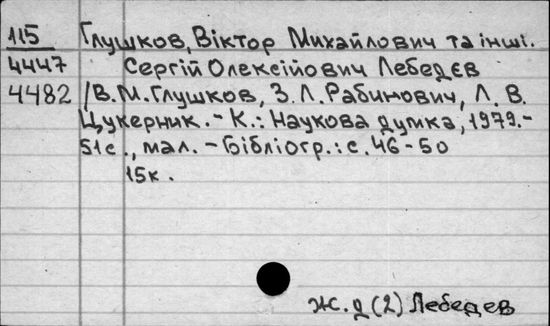 115 Глушков, Віктор Михайлович та інші.
4447 Сергій Олексійович Лебедєв
4482 /В.М.Глушков, З.Л.Рабинович, Л.В.
Цукерник.-К.: Наукова думка, 1979.-
51с., мал. - Бібліогр.: с. 46-50
15к.
ж.д(2) Лебедев